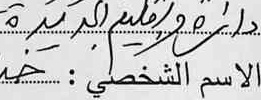 دائرة وإقليم الجديدة
الاسم الشخصي :